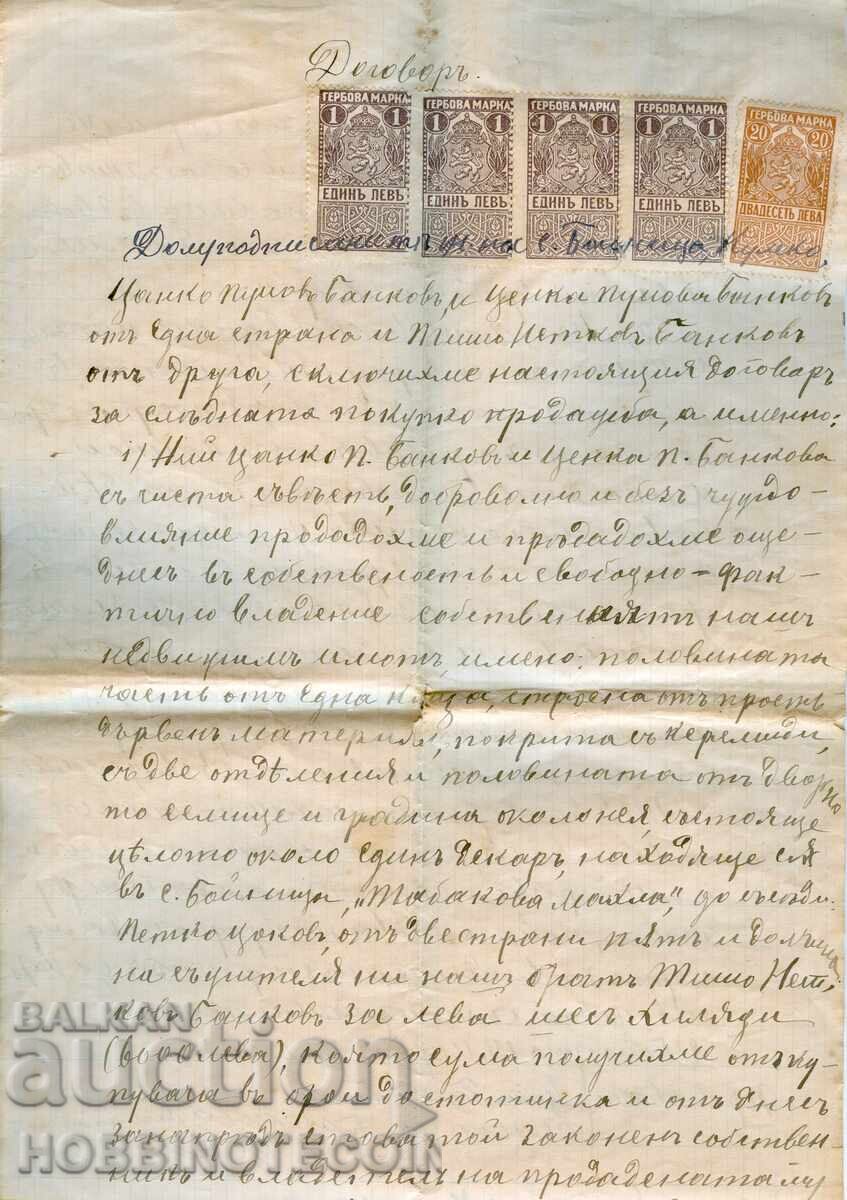 Договоръ.
ГЕРБОВА МАРКА ГЕРБОВА МАРКА ГЕРБОВА МАРКА ГЕРБОВА МАРКА ГЕРБОВА МАРКА
1 1 1 1 1 1 1 1 20 20
ЕДИНЪ ЛЕВЪ ЕДИНЪ ЛЕВЪ ЕДИНЪ ЛЕВЪ ЕДИНЪ ЛЕВЪ ДВАДЕСЕТЬ ЛЕВА
Долуподписанитѣ на с. Бойница, Кулско,
Цанко Пуновъ Банковъ, и Ценка Пунова Банковъ
отъ една страна и Тишо Петковъ Банковъ
отъ друга, сключихме настоящия договоръ
за следната покупко продажба, а именно:
1) Ний Цанко П. Банковъ и Ценка П. Банкова
съ чиста съвѣсть, доброволно и безъ чуждо-
влияние продадохме и прѣдадохме още-
днесъ въ собственость и свободно-фак-
тично владение собственнятъ нашъ
недвижимъ имотъ, имено: половината
часть отъ една къща, строена отъ простъ
дървенъ материалъ, покрита съ керемиди,
съ две отдѣления и половината отъ дворно
то селище и градина около нея, състояще
цѣлото около единъ декаръ, находяще ся
въ с. Бойница, „Табакова махла", до съседи:
Петко Цоковъ, отъ две страни пѫтъ и долчина
на същителя ни нашъ братъ Тишо Пет-
ковъ Банковъ за лева шесъ хиляди
(6000 лева), която сума получихме отъ ку-
пувача въ брой до стотинка и отъ днесъ
занапрѣдъ става той законенъ собствен-
никъ и владетель на продадената му
BALKAN
auction
HOBBINOTECOIN